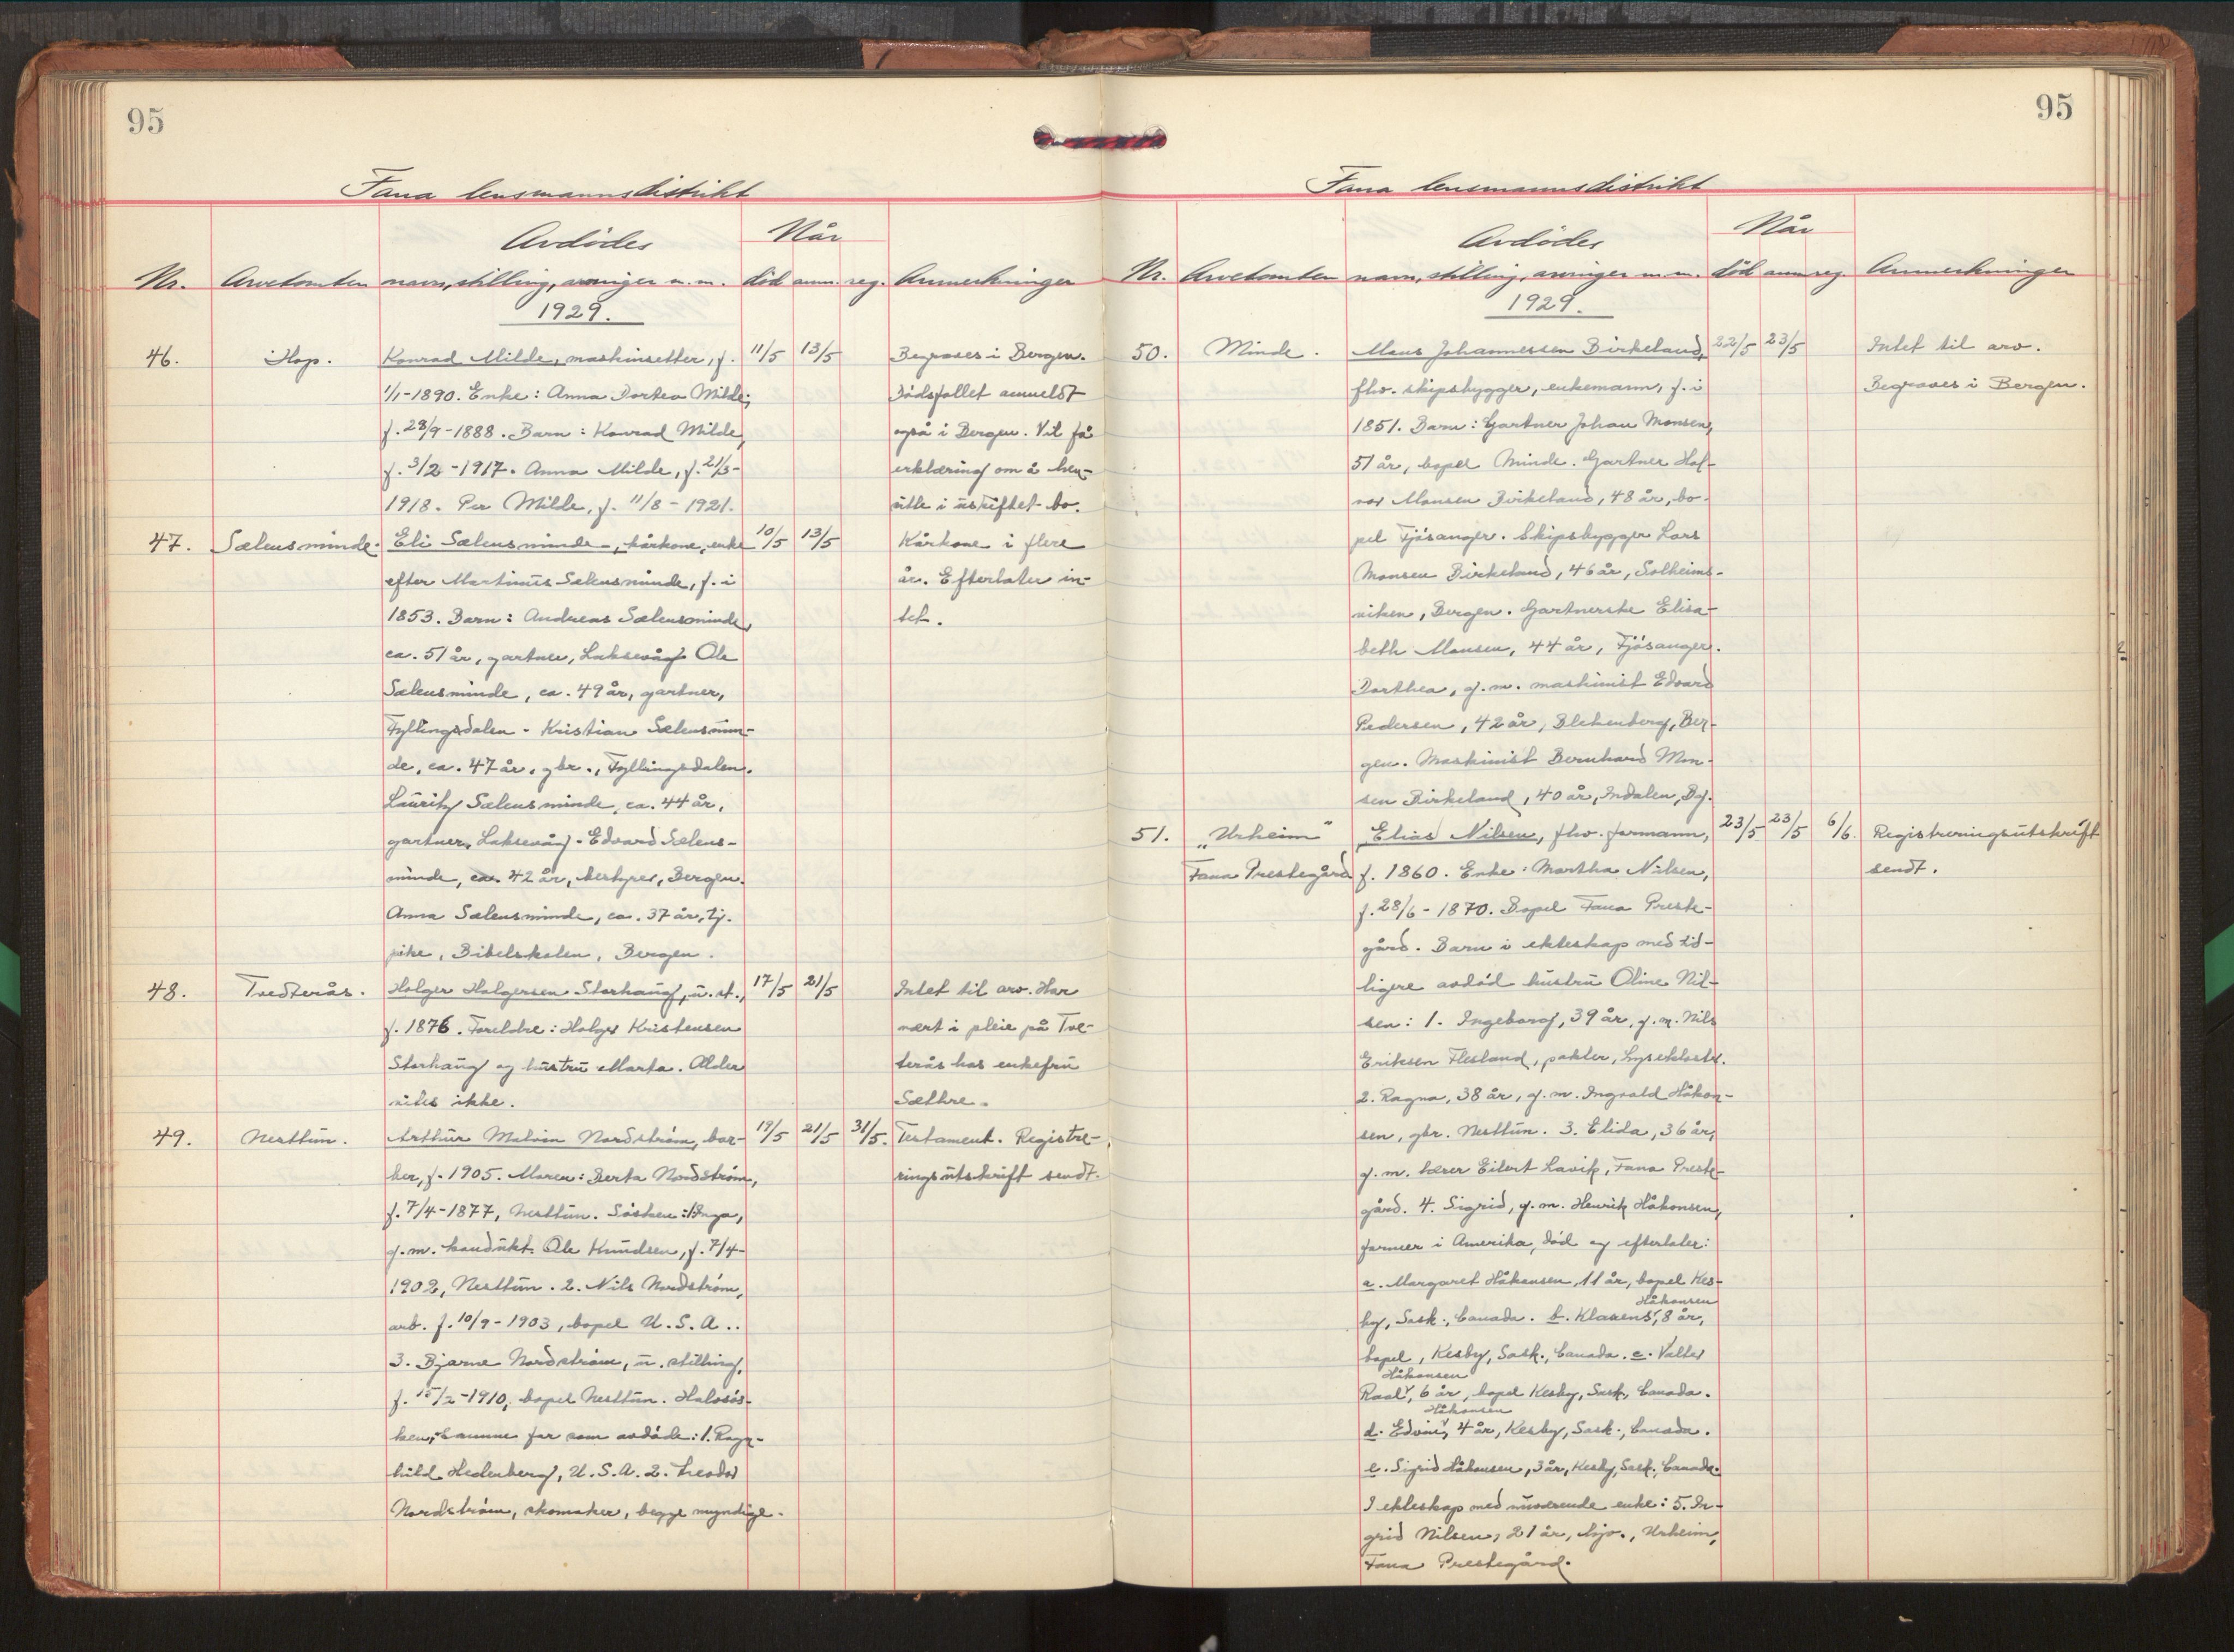 95
Fana lensmannsdistrikt
Avdødes
Når
Nr. Arvetomten navn, stilling, arvinger m.m. død anm. reg. Anmerkninger
1929.
46. Hop. Konrad Milde, maskinsetter, f. 11/5 13/5 Begraves i Bergen.
1/1-1890. Enke: Anna Dortea Milde, Dødsfallet anmeldt
f. 28/9-1888. Barn: Konrad Milde, også i Bergen. Vil få
f. 3/2-1917. Anna Milde, f. 21/3- erklæring om å hen-
1918. Per Milde, f. 11/8-1921. sitte i uskiftet bo.
47. Sælensminde. Eli Sælensminde, kårkone, enke 10/5 13/5 Kårkone i flere
efter Martinus Sælensminde, f. i år. Efterlater in-
1853. Barn: Andreas Sælensminde, tet.
ca. 51 år, gartner, Laksevåg. Ole
Sælensminde, ca. 49 år, gartner,
Fyllingsdalen. Kristian Sælensmin-
de, ca. 47 år, gbr., Fyllingsdalen.
Lauritz Sælensminde, ca. 44 år,
gartner, Laksevåg. Edvard Sælens-
minde, ca. 42 år, bestyrer, Bergen.
Anna Sælensminde, ca. 37 år, tj.
pike, Bibelskolen, Bergen.
48. Tvedterås. Holger Holgersen Storhaug, u. st., 17/5 21/5 Intet til arv. Har
f. 1876. Foreldre: Holger Kristensen vært i pleie på Tve-
Storhaug og hustru Marta. Alder terås hos enkefru
vites ikke. Sæthre.
49. Nesttun. Arthur Malvin Nordstrøm, bar- 19/5 21/5 31/5. Testament. Registre-
ber, f. 1905. Moren: Berta Nordstrøm, ringsutskrift sendt.
f. 7/4-1877, Nesttun. Søsken: 1. Inga,
g. m. kondukt. Ole Knudsen, f. 7/4-
1902, Nesttun. 2. Nils Nordstrøm,
arb. f. 10/9-1903, bopel U.S.A..
3. Bjarne Nordstrøm, u. stilling,
f. 15/2-1910, bopel Nesttun. Halvsøs-
ken, samme far som avdøde: 1. Ragn-
hild Hedenberg, U.S.A. 2. Teodor
Nordstrøm, skomaker, begge myndige.
95
Fana lensmannsdistrikt
Avdødes
Når
Nr. Arvetomten navn, stilling, arvinger m.m. død anm reg. Anmerkninger
1929.
50. Minde. Mons Johannessen Birkeland, 22/5 23/5 Intet til arv.
fhv. skipsbygger, enkemann, f. i Begraves i Bergen.
1851. Barn: Gartner Johan Monsen,
51 år, bopel Minde. Gartner Hal-
vor Monsen Birkeland, 48 år, bo-
pel Fjøsanger. Skipsbygger Lars
Monsen Birkeland, 46 år, Solheims-
viken, Bergen. Gartnerske Elisa-
beth Monsen, 44 år, Fjøsanger.
Dorthea, g. m. maskinist Edvard
Pedersen, 42 år, Blekenberg, Ber-
gen. Maskinist Bernhard Mon-
sen Birkeland, 40 år, Indalen, Bg.
51. "Urheim" Elias Nilsen, fhv. formann, 23/5 23/5 6/6. Registreringsutskrift
Fana Prestegård f. 1860. Enke: Martha Nilsen, sendt.
f. 28/6-1870. Bopel Fana Preste-
gård. Barn i ekteskap med tid-
ligere avdød hustru Oline Nil-
sen: 1. Ingeborg, 39 år, g. m. Nils
Eriksen Flesland, pakter, Lysekloster.
2. Ragna, 38 år, g. m. Ingvald Håkon-
sen, gbr. Nesttun. 3. Elida, 36 år,
g. m. lærer Eilert Lavik, Fana Preste-
gård. 4. Sigrid, g. m. Henrik Håkonsen,
farmer i Amerika, død og efterlater:
a. Margaret Håkonsen, 11 år, bopel Kes-
Håkonsen
by, Sask., Canada. b. Klarens, 8 år,
bopel, Kesby, Sask., Canada. c. Valter
Håkonsen
Roal, 6 år, bopel Kesby, Sask., Canada.
Håkonsen
d. Edvin, 4 år, Kesby, Sask., Canada.
e. Sigrid Håkonsen, 3 år, Kesby, Sask., Canada.
I ekteskap med nuværende enke: 5. In-
grid Nilsen, 21 år, hjv., Urheim,
Fana Prestegård.